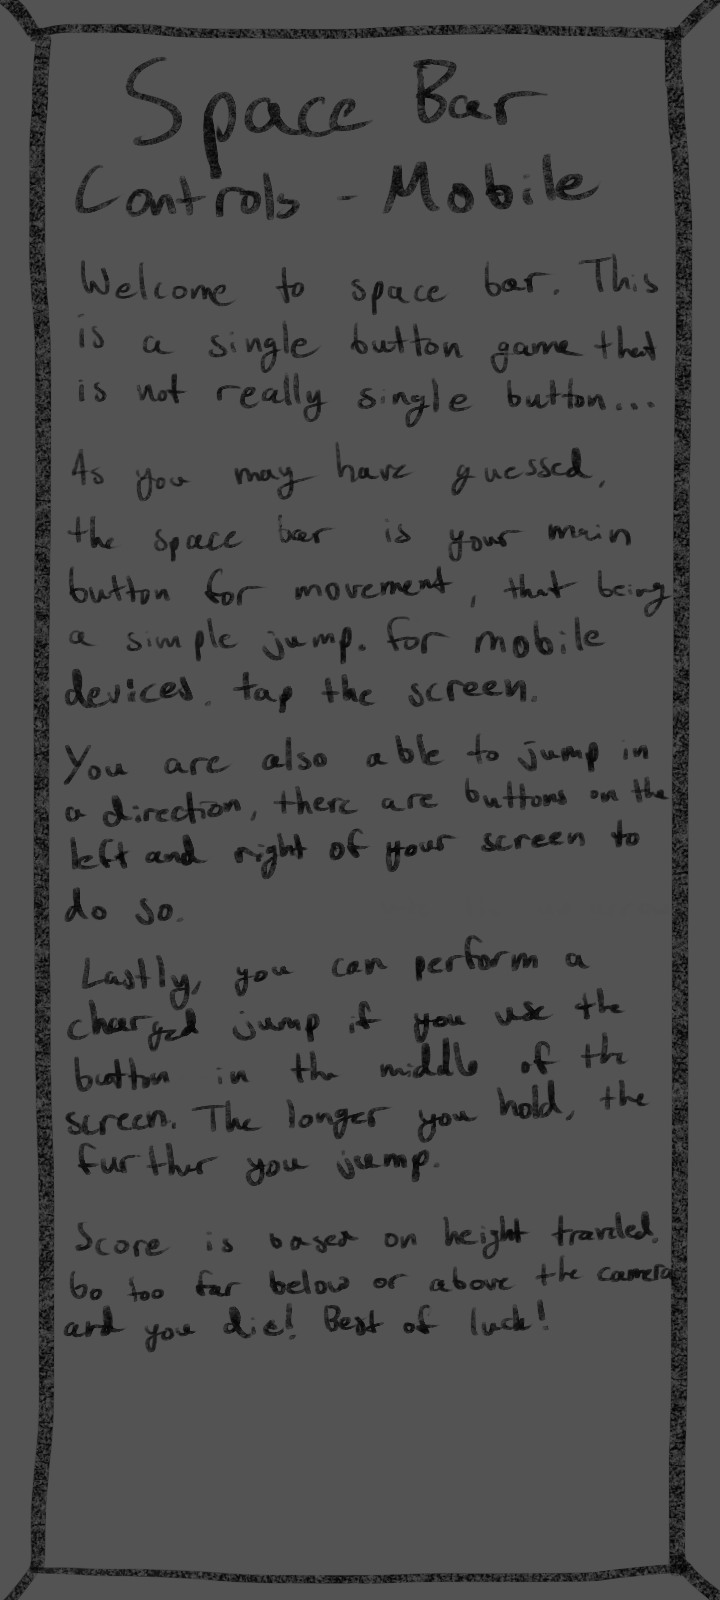 Space Bar
Controls - Mobile
Welcome to space bar. This
is a single button game that
is not really single button...
As you may have guessed,
the space bar is your main
button for movement, that being
a simple jump. for mobile
devices. tap the screen.
You are also able to jump in
a direction, there are buttons on the
left and right of your screen to
do so.
Lastly, you can perform a
charged jump if you use the
button in the middle of the
screen. The longer you hold, the
further you jump.
Score is based on height traveled.
Go too far below or above the camera
and you die! Best of luck!